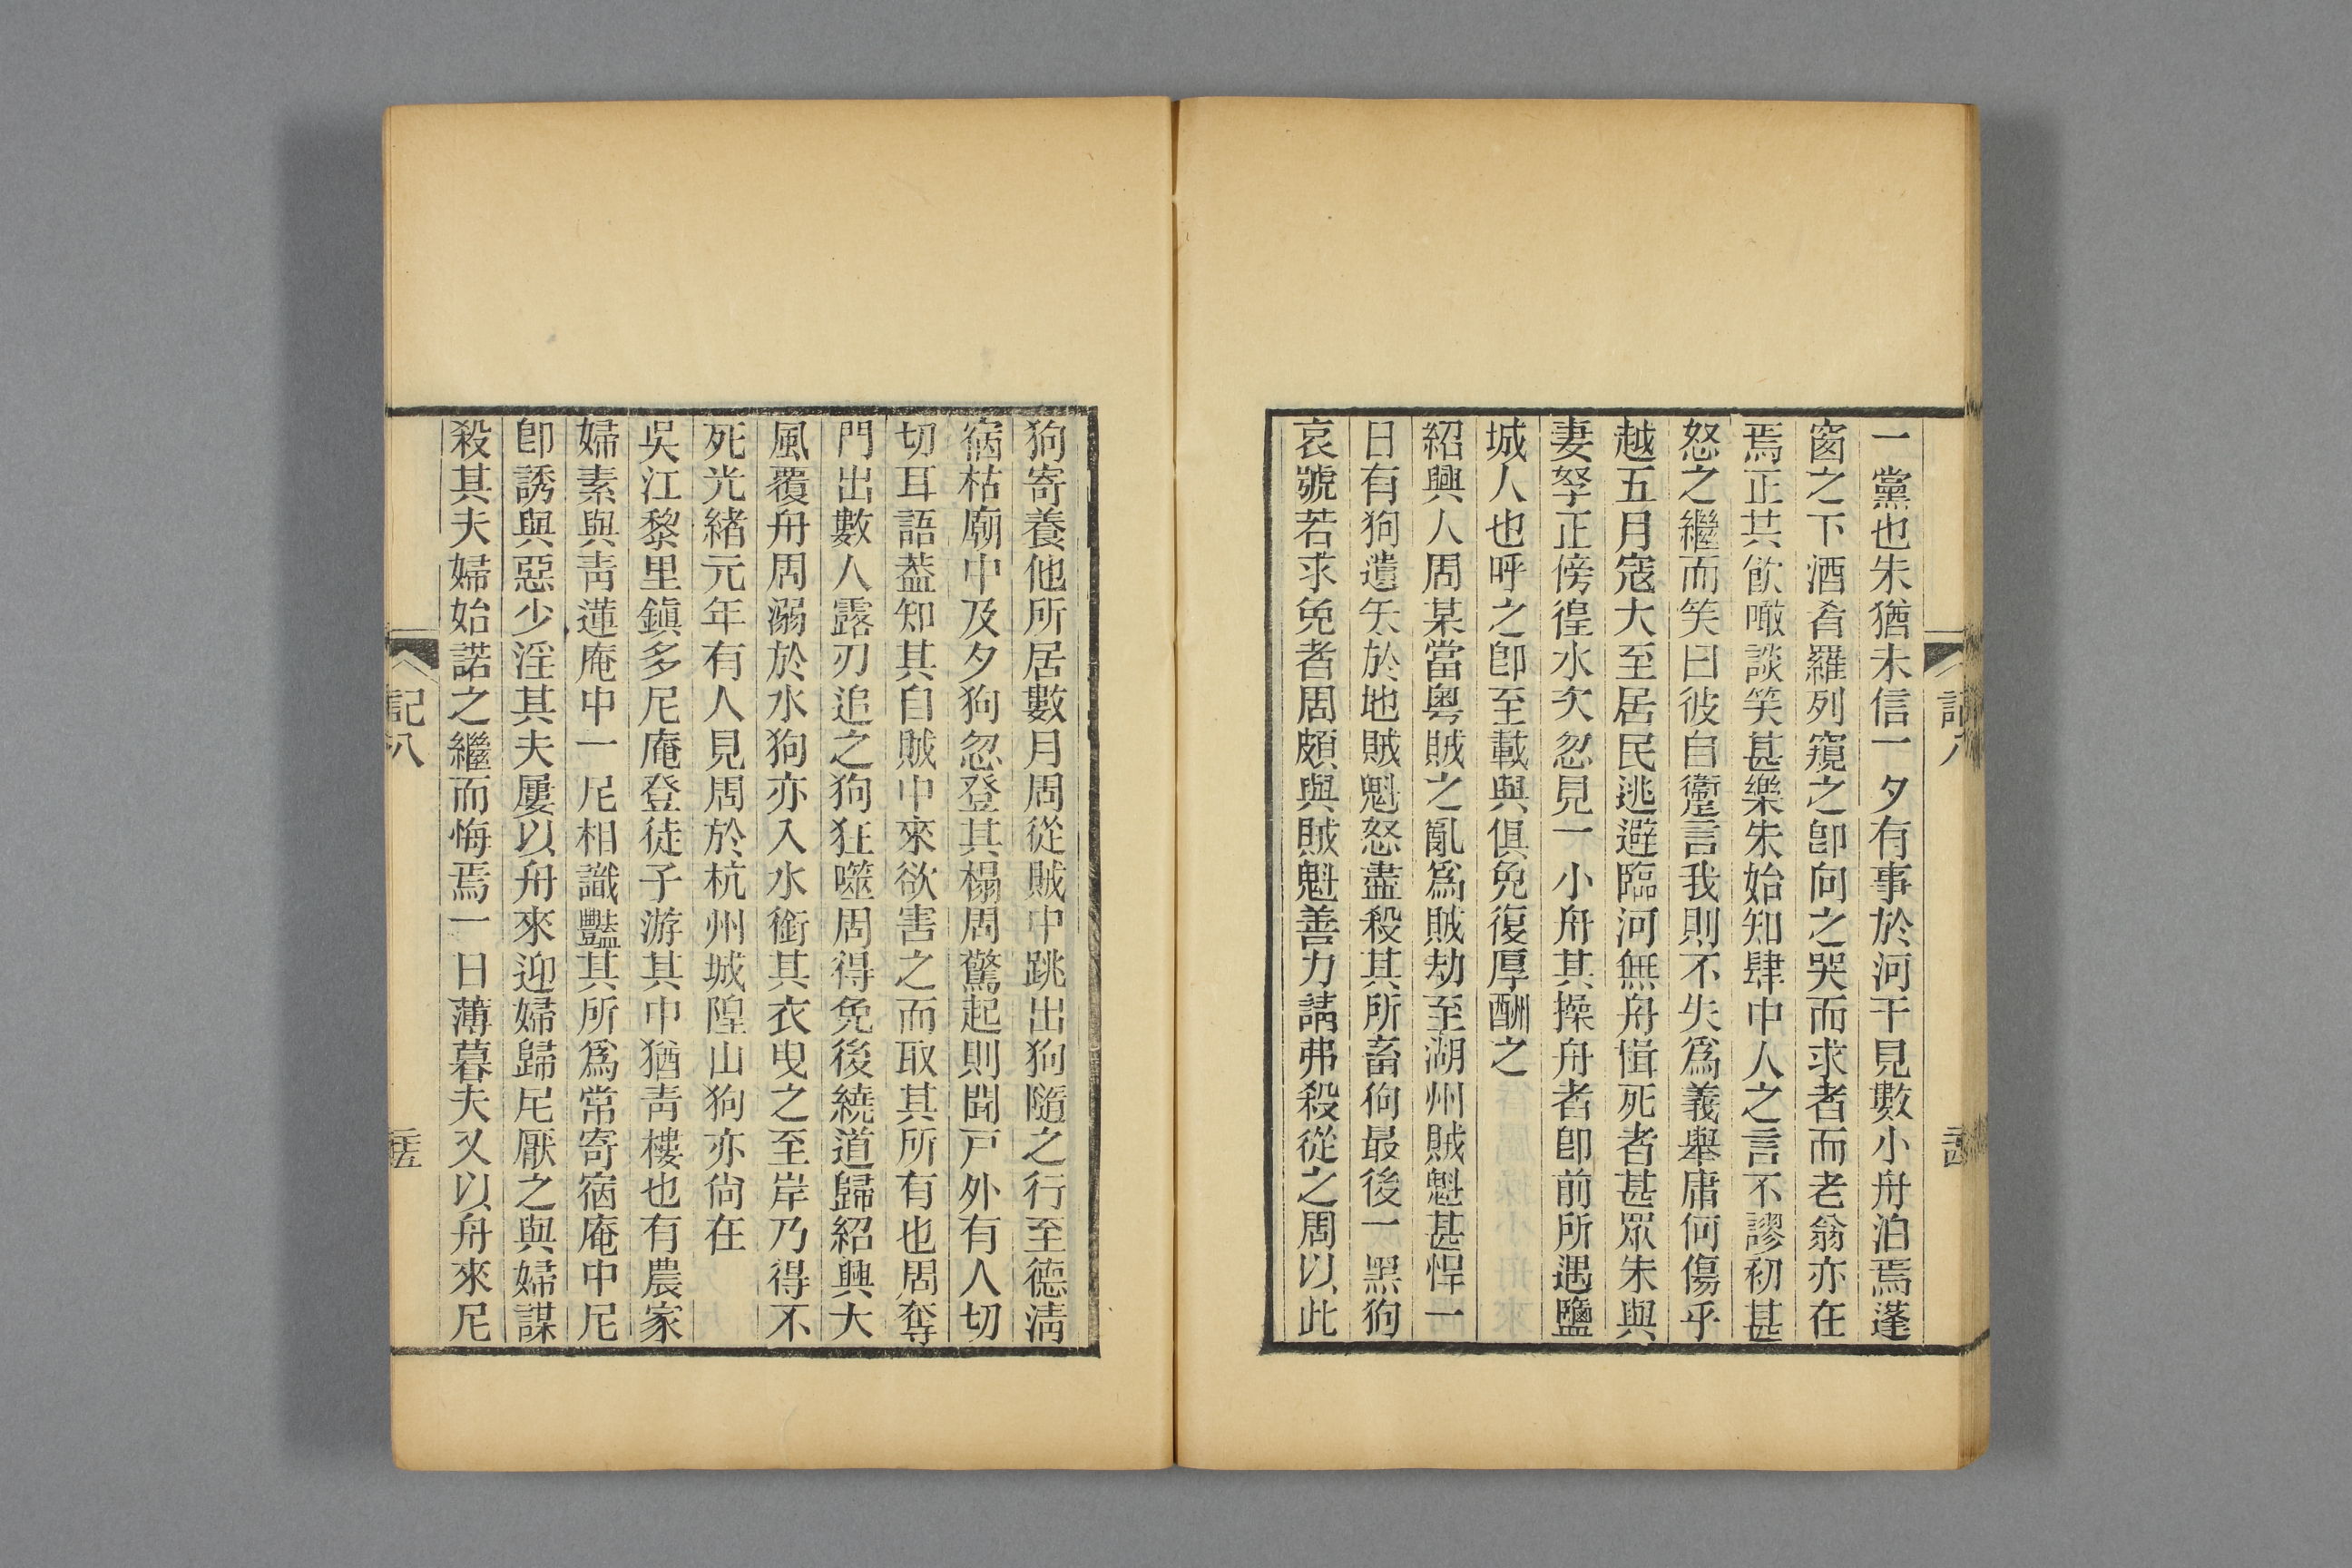 一黨也朱猶未信一夕有事於河干見數小舟泊焉蓬
窗之下酒肴羅列窺之卽向之哭而求者而老翁亦在
焉正共飮噉談笑甚樂朱始知肆中人之言不謬初甚
怒之繼而笑曰彼自躗言我則不失爲義舉庸何傷乎
越五月寇大至居民逃避臨河無舟偕死者甚眾朱與
妻孥正傍徨水次忽見一小舟其操舟者卽前所遇鹽
城人也呼之卽至載與俱免復厚酬之
紹興人周某當粤賊之亂爲賊劫至湖州賊魁甚悍一
日有狗遺矢於地賊魁怒盡殺其所畜狗最後一黑狗
哀號若求免者周頗與賊魁善力請弗殺從之周以此
狗寄養他所居數月周從賊中跳出狗隨之行至德淸
宿枯廟中及夕狗忽登其榻周驚起則聞戸外有人切
切耳語葢知其自賊中來欲害之而取其所有也周奪
門出數人露刃追之狗狂噬周得免後繞道歸紹興大
風覆舟周溺於水狗亦入水銜其衣曳之至岸乃得不
死光緒元年有人見周於杭州城隍山狗亦尙在
吳江黎里鎭多尼庵登徒子游其中猶靑樓也有農家
婦素與靑蓮庵中一尼相識豔其所爲常寄宿庵中尼
卽誘與惡少淫其夫屢以舟來迎婦歸尼厭之與婦謀
殺其夫婦始諾之繼而悔焉一日薄暮夫又以舟來尼
記八